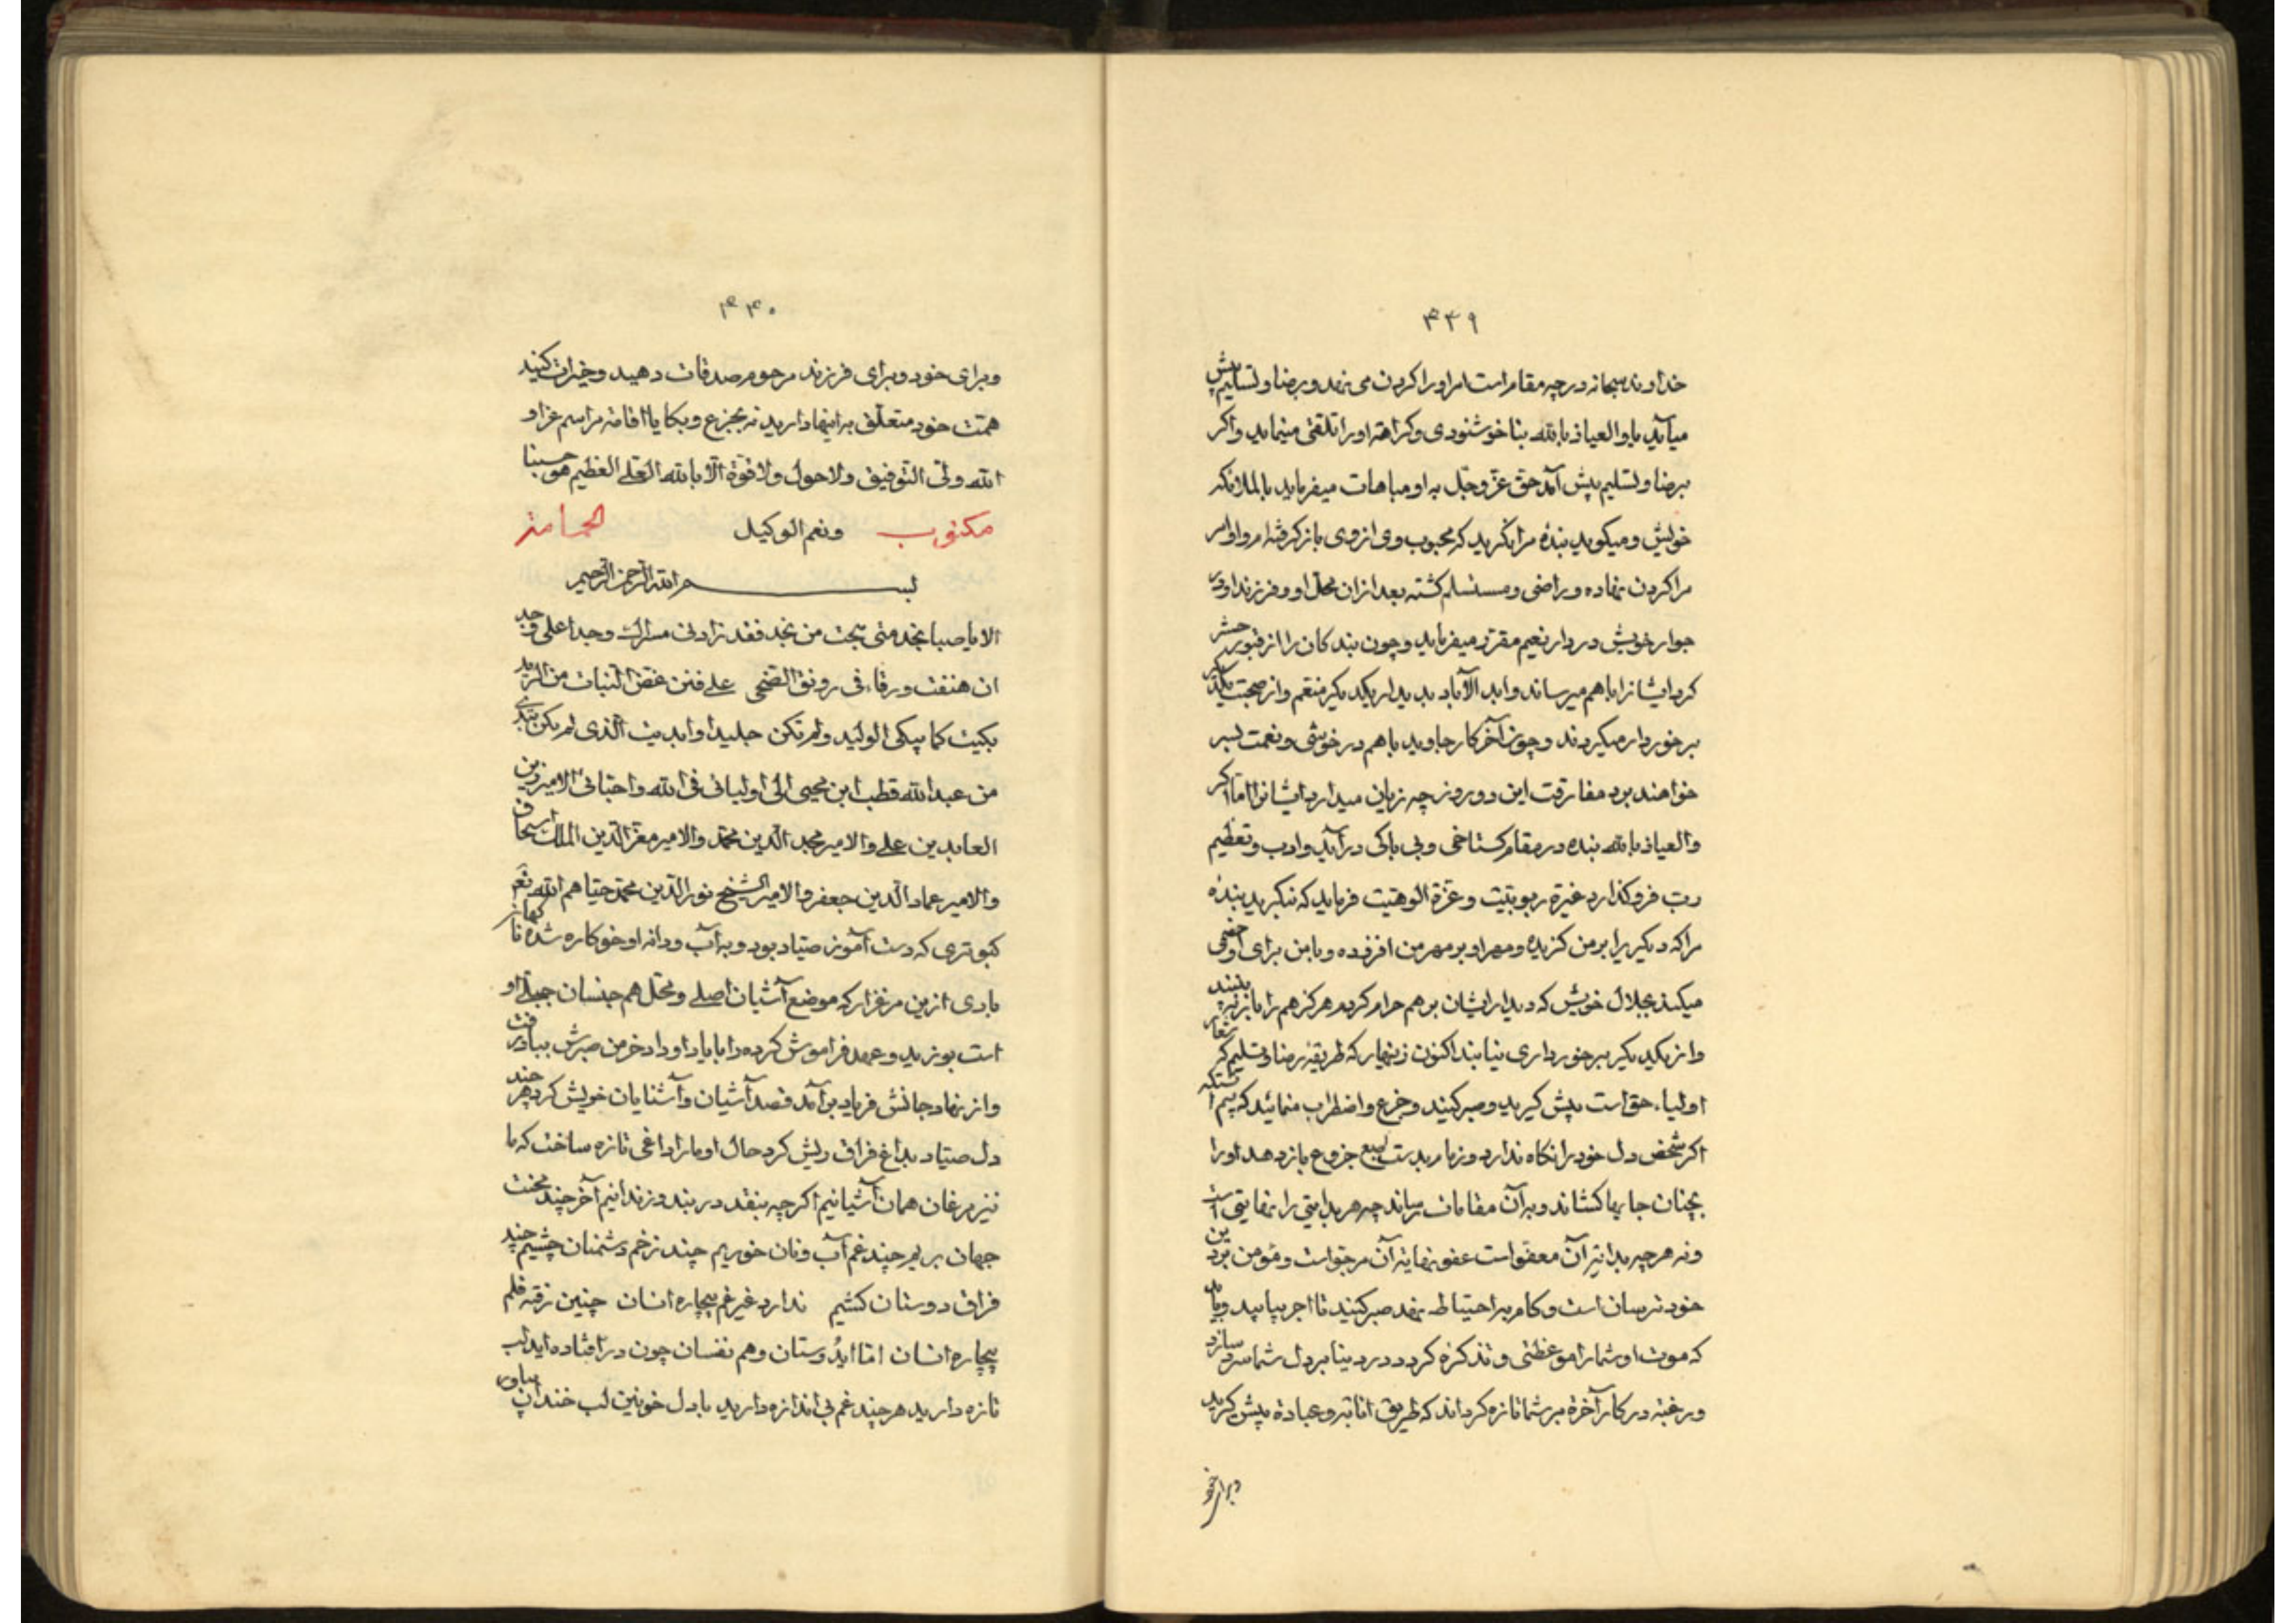 ۴۳۹
خداوند سبحانه در چه مقام است امر او را کردن می نهد و برضا و تسلیم پیش
میآید یا و العیاذ بالله بنا خوشنودی و کراهته او را تلقی مینماید و اکر
برضا و تسلیم پیش آمد حق عز و جل به او مباهات میفرماید با ملائکه
خویش و میکوید بندهٔ مرا بنکرید که محبوب وی از وی باز کرفته ام و او امر
مرا کردن نهاده و راضی و مستسلم کشته بعد از ان محل او و فرزند او در
جوار خویش در دار نعیم مقرر میفرماید و چون بندکان را از قبور حشر
کرد ایشانرا باهم میرساند و ابد الآباد بدیدار یکدیکر منتعم و از صحبت یکدیکر
برخوردار میکردند و چون آخر کار جاوید باهم در خوشی و نعمت بسر
خواهند برد مفارقت این دو روز چه زیان میدارد ایشانرا اما اکر
والعیاذ بالله بنده در مقام کستاخی و بی باکی درآید و ادب و تعظیم
رب فروکذارد غیرة ربوبیت و عزة الوهیت فرماید که بنکرید بندهٔ
مرا که دیکریرا بر من کزیده و مهر او بر مهر من افزوده و با من برای او خصمی
میکند بجلال خویش که دیدار ایشان بر هم حرام کردم هرکز هم را باز نه بینند
و از یکدیکر برخورداری نیابند اکنون زینهار که طریقهٔ رضا و تسلیم که شعار
اولیاء حق است پیش کیرید و صبر کنید و جزع و اضطراب منمائید که بیم آنستکه
اکر شخص دل خود را نکاه ندارد و زمام بدست طبع جزوع باز دهد او را
بچنان جایها کشاند و به آن مقامات رساند چه هر بدایتی را نهایتی است
و نه هرچه بدایة آن معفو است عفو نهایة آن مرجو است و مؤمن بر دین
خود ترسان است و کام به احتیاط نهد صبر کنید تا اجر بیابید و باید
که موت او شما را موعظتی و تذکرة کردد در دنیا بر دل شما سرد سازد
و رغبة در کار آخرة بر شما تازه کرداند که طریق انابة و عبادة پیش کیرید
و برای خود
۴۴۰
و برای خود و برای فرزند مرحوم صدقات دهید و خیرات کنید
همت خود متعلق به اینها دارید نه بجزع و بکا یا اقامة مراسم عزا و
الله ولی التوفیق ولا حول ولا قوة الا بالله العلی العظیم هو حسبنا
مکتوب ونعم الوکیل الخامذ
بسم الله الرحمن الرحیم
الا یا صبا نجد متی هجت من نجد فقد زادنی مسراک وجدا علی وجد
ان هتفت ورقاء فی رونق الضحی علی فنن غض النبات من الرند
بکیت کما یبکی الولید ولم تکن جلیدا وابدیت الذی لم یکن یبدی
من عبدالله قطب ابن محیی الی اولیائی فی الله واحبائی الامیر زین
العابدین علی والامیر مجد الدین محمد والامیر معز الدین الملک اسحاق
والامیر عماد الدین جعفر والامیر الشیخ نور الدین محمد حیاهم الله تعم
کبوتری که دست آموز صیاد بود و به آب و دانه او خوکاره شده ناکهان
بادی از ین مرغزار که موضع آشیان اصلی و محل هم جنسان جبلی او
است بوزید و عهد فراموش کرده را با یاد او داد خرمن صبرش بباد رفت
و از نهاد جانش فریاد برآمد قصد آشیان و آشنایان خویش کرد هر چند
دل صیاد بداغ فراق ریش کرد حال او ما را داغی تازه ساخت که ما
نیز مرغان همان آشیانیم اکرچه بنقد در بند و زندانیم آخر چند محنت
جهان بریم چند غم آب و نان خوریم چند زخم دشمنان چشیم چند
فراق دوستان کشیم ندارد غیر غم بیچاره انسان چنین رفته قلم
بیچاره انسان اما اید وستان و هم نفسان چون در افتاده اید لب
تازه دارید هر چند غم بی اندازه دارید با دل خونین لب خندان بیاور